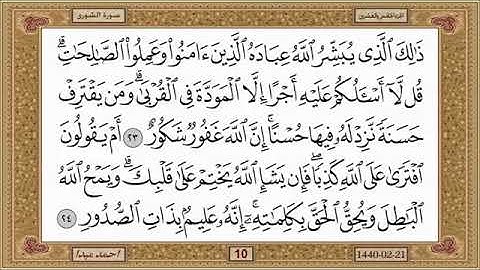 سورة الشورى
الجزء الخامس والعشرين
ذَٰلِكَ ٱلَّذِى يُبَشِّرُ ٱللَّهُ عِبَادَهُ ٱلَّذِينَ ءَامَنُوا۟ وَعَمِلُوا۟ ٱلصَّٰلِحَٰتِ ۗ
قُل لَّآ أَسْـَٔلُكُمْ عَلَيْهِ أَجْرًا إِلَّا ٱلْمَوَدَّةَ فِى ٱلْقُرْبَىٰ ۗ وَمَن يَقْتَرِفْ
حَسَنَةً نَّزِدْ لَهُۥ فِيهَا حُسْنًا ۚ إِنَّ ٱللَّهَ غَفُورٌ شَكُورٌ ٢٣ أَمْ يَقُولُونَ
ٱفْتَرَىٰ عَلَى ٱللَّهِ كَذِبًا ۖ فَإِن يَشَإِ ٱللَّهُ يَخْتِمْ عَلَىٰ قَلْبِكَ ۗ وَيَمْحُ ٱللَّهُ
ٱلْبَٰطِلَ وَيُحِقُّ ٱلْحَقَّ بِكَلِمَٰتِهِۦٓ ۚ إِنَّهُۥ عَلِيمٌۢ بِذَاتِ ٱلصُّدُورِ ٢٤
10
1440-02-21